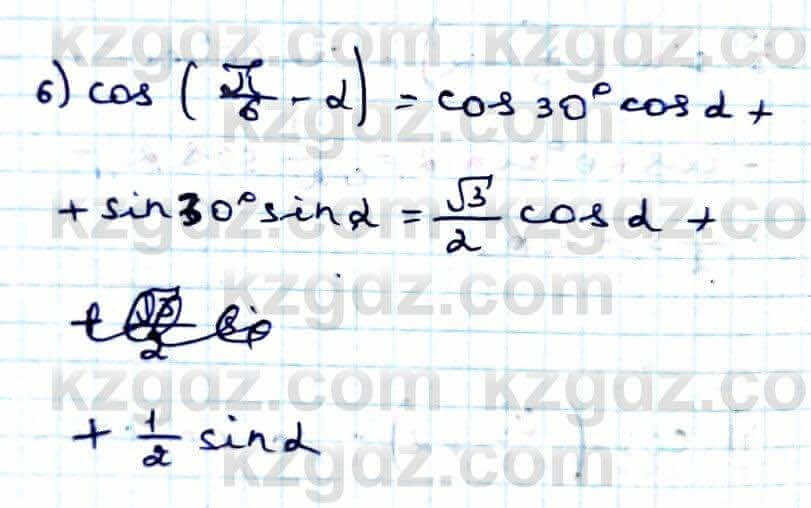 kzgdz.com kzgdz.co
б) cos (π/6 - α) = cos 30° cos α +
kzgdz.com
+ sin 30° sin α = √3/2 cos α +
kzgdz.com kzgdz.co
kzgdz.com
kzgdz.com kzgdz.co
+ 1/2 sin α
kzgdz.com